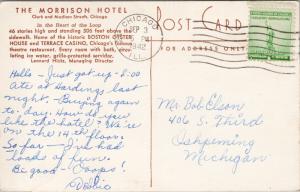 THE MORRISON HOTEL
Clark and Madison Streets, Chicago
In the Heart of the Loop
46 stories high and standing 526 feet above the
sidewalk. Home of the historic BOSTON OYSTER
HOUSE and TERRACE CASINO, Chicago's famous
theatre restaurant. Every room with bath, circu-
lating ice water, grille-protected servidor.
Leonard Hicks, Managing Director
POST CARD
FOR ADDRESS ONLY
CHICAGO
SEP
PM
1942
ILL.
Hello - Just got up - 8:00
Ate at Hardings last
night. Buying again
today. How do you
like the hotel? We're
on the 14th floor.
So far - I've had
loads of fun.
Be good - Ooops!
Mr. Bob Elson
406 S. Third
Ishpeming
Michigan